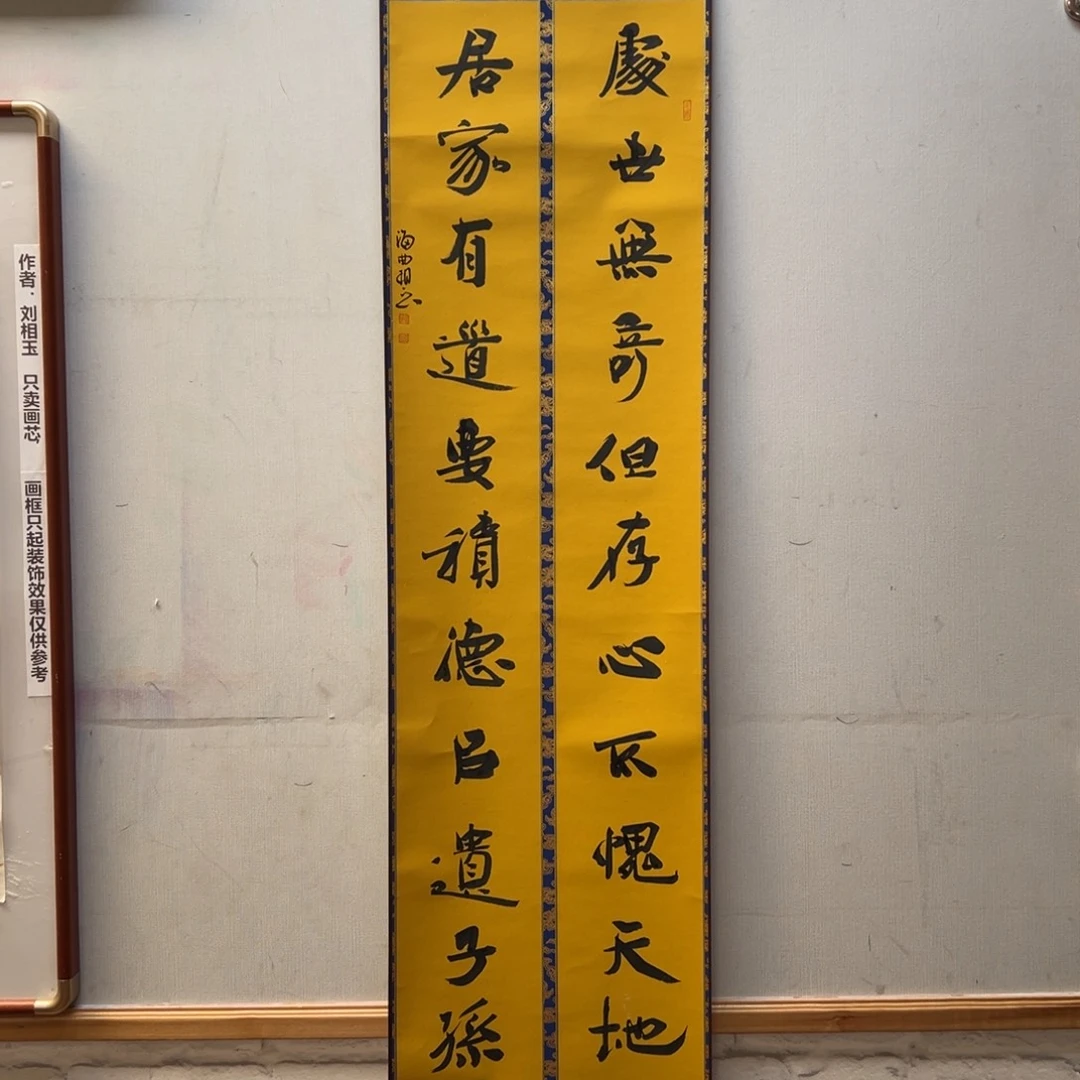 處世無奇但存心不愧天地
居家有道要積德㠯遺子孫
海曲相玉
作者：刘相玉 只卖画芯,
画框只起装饰效果仅供参考